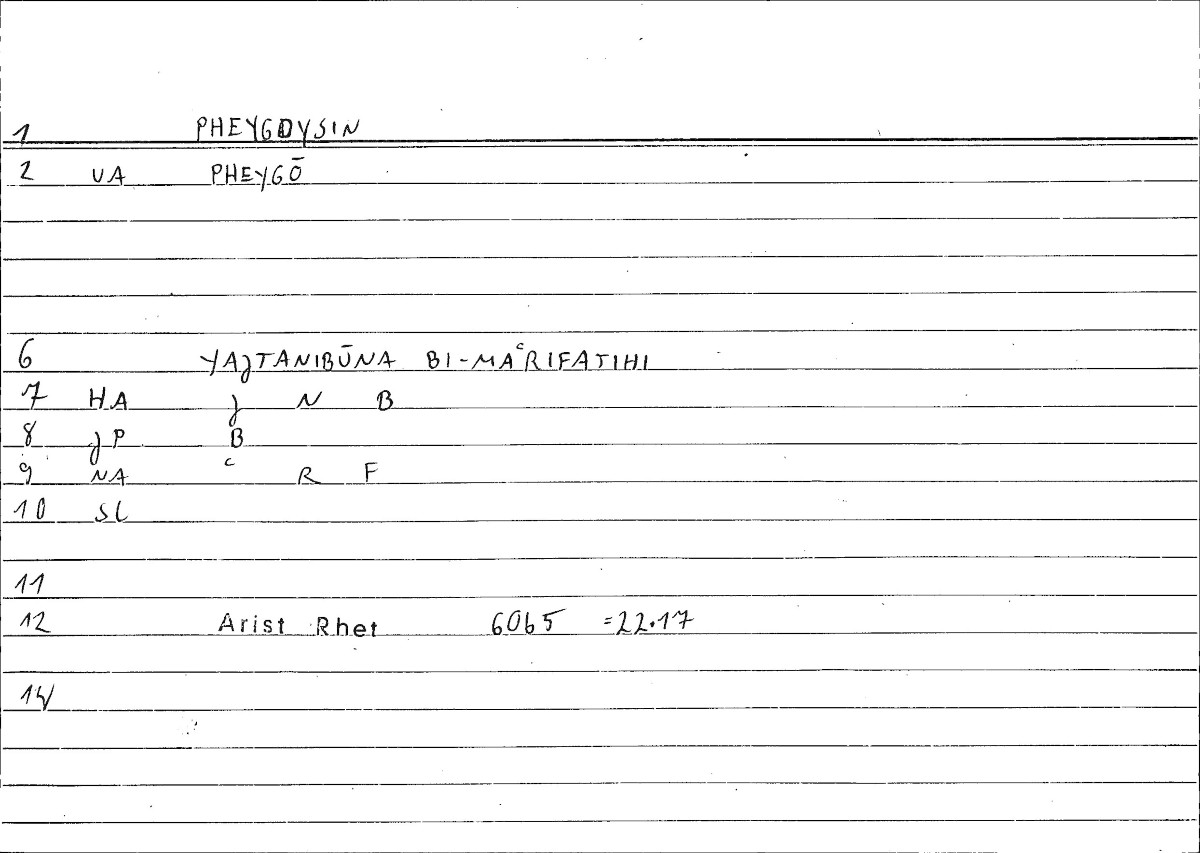 1 PHEYGOYSIN
2 VA PHEYGŌ
6 YAJTANIBŪNA BI-MAᶜRIFATIHI
7 HA J N B
8 JP B
9 NA ᶜ R F
10 SL
11
12 Arist Rhet 6065 =22.17
14